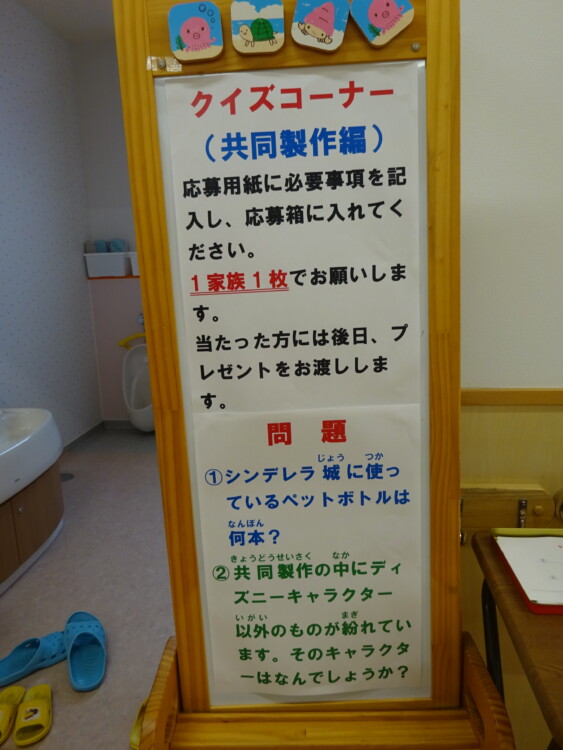 クイズコーナー
（共同製作編）
応募用紙に必要事項を記
入し、応募箱に入れてく
ださい。
１家族１枚でお願いしま
す。
当たった方には後日、プ
レゼントをお渡ししま
す。
問題
じょう つか
①シンデレラ城に使っ
ているペットボトルは
なんぼん
何本？
きょうどうせいさく なか
②共同製作の中にディ
ズニーキャラクター
いがい まぎ
以外のものが紛れてい
ます。そのキャラクタ
ーはなんでしょうか？